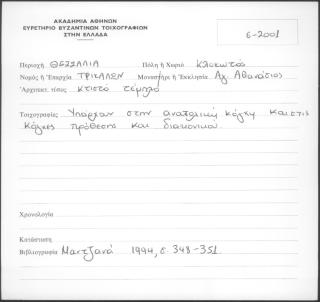 ΑΚΑΔΗΜΙΑ ΑΘΗΝΩΝ
ΕΥΡΕΤΗΡΙΟ ΒΥΖΑΝΤΙΝΩΝ ΤΟΙΧΟΓΡΑΦΙΩΝ
ΣΤΗΝ ΕΛΛΑΔΑ
6-2001
Περιοχή ΘΕΣΣΑΛΙΑ Πόλη ή Χωριό Κλοκωτός
Νομός ή Ἐπαρχία ΤΡΙΚΑΛΩΝ Μοναστήρι ή Ἐκκλησία Αγ. Αθανάσιος
Ἀρχιτεκτ. τύπος κτιστό τέμπλο
Τοιχογραφίες Υπάρχουν στην ανατολική κόγχη και στις
κόγχες πρόθεσης και διακονικού.
Χρονολογία
Κατάσταση
Βιβλιογραφία Μαντζανά 1994, σ. 348-351